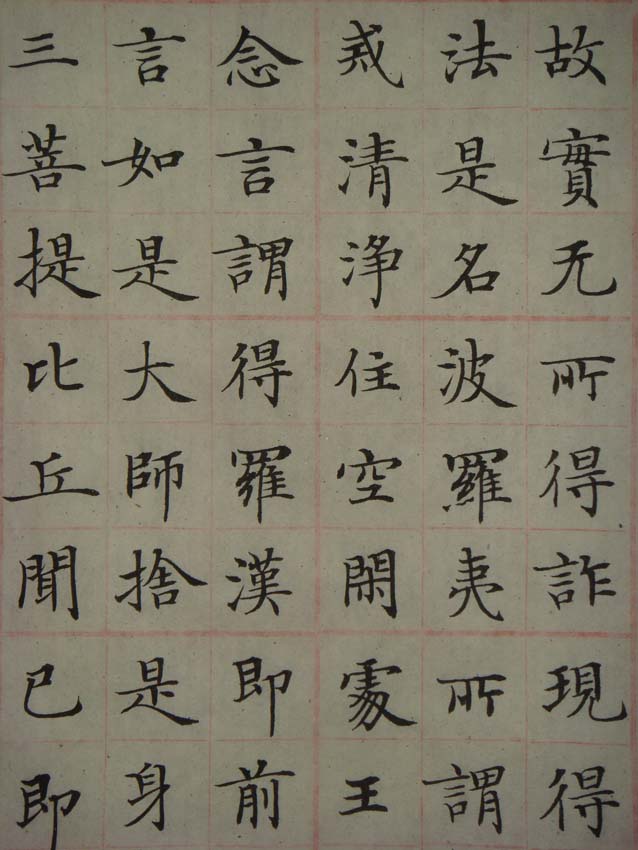 故實无所得詐現得
法是名波羅夷所謂
戒清淨住空閑處王
念言謂得羅漢即前
言如是大師捨是身
三菩提比丘聞已即